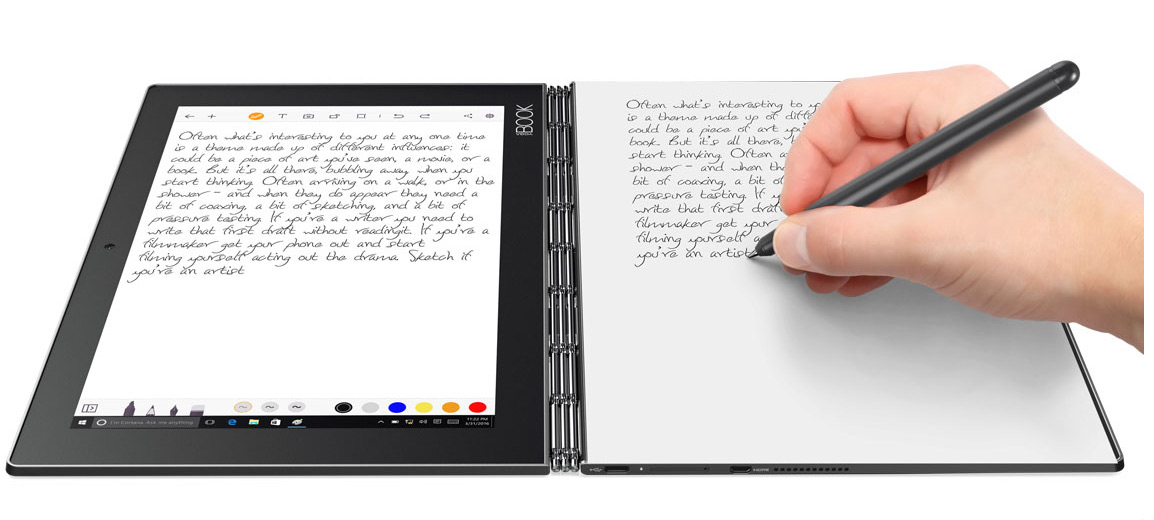 YOGA BOOK
Often what's interesting to you at any one time
is a theme made up of different influences: it
could be a piece of art you've seen, a movie, or a
book. But it's all there, bubbling away when you
start thinking. Often arriving on a walk, or in the
shower - and when they do appear they need a
bit of coaxing, a bit of sketching, and a bit of
pressure testing. If you're a writer you need to
write that first draft without readingit. If you're a
filmmaker get your phone out and start
filming yourself acting out the drama. Sketch if
you're an artist
I'm Cortana. Ask me anything
11:22 PM
3/31/2016
Often what's interesting to
is a theme made up of
could be a piece of art
book. But it's all there,
start thinking. Often
shower - and when
bit of coaxing, a bit of
pressure testing. If
write that first draft
filmmaker get your
filming yourself
you're an artist
HDMI